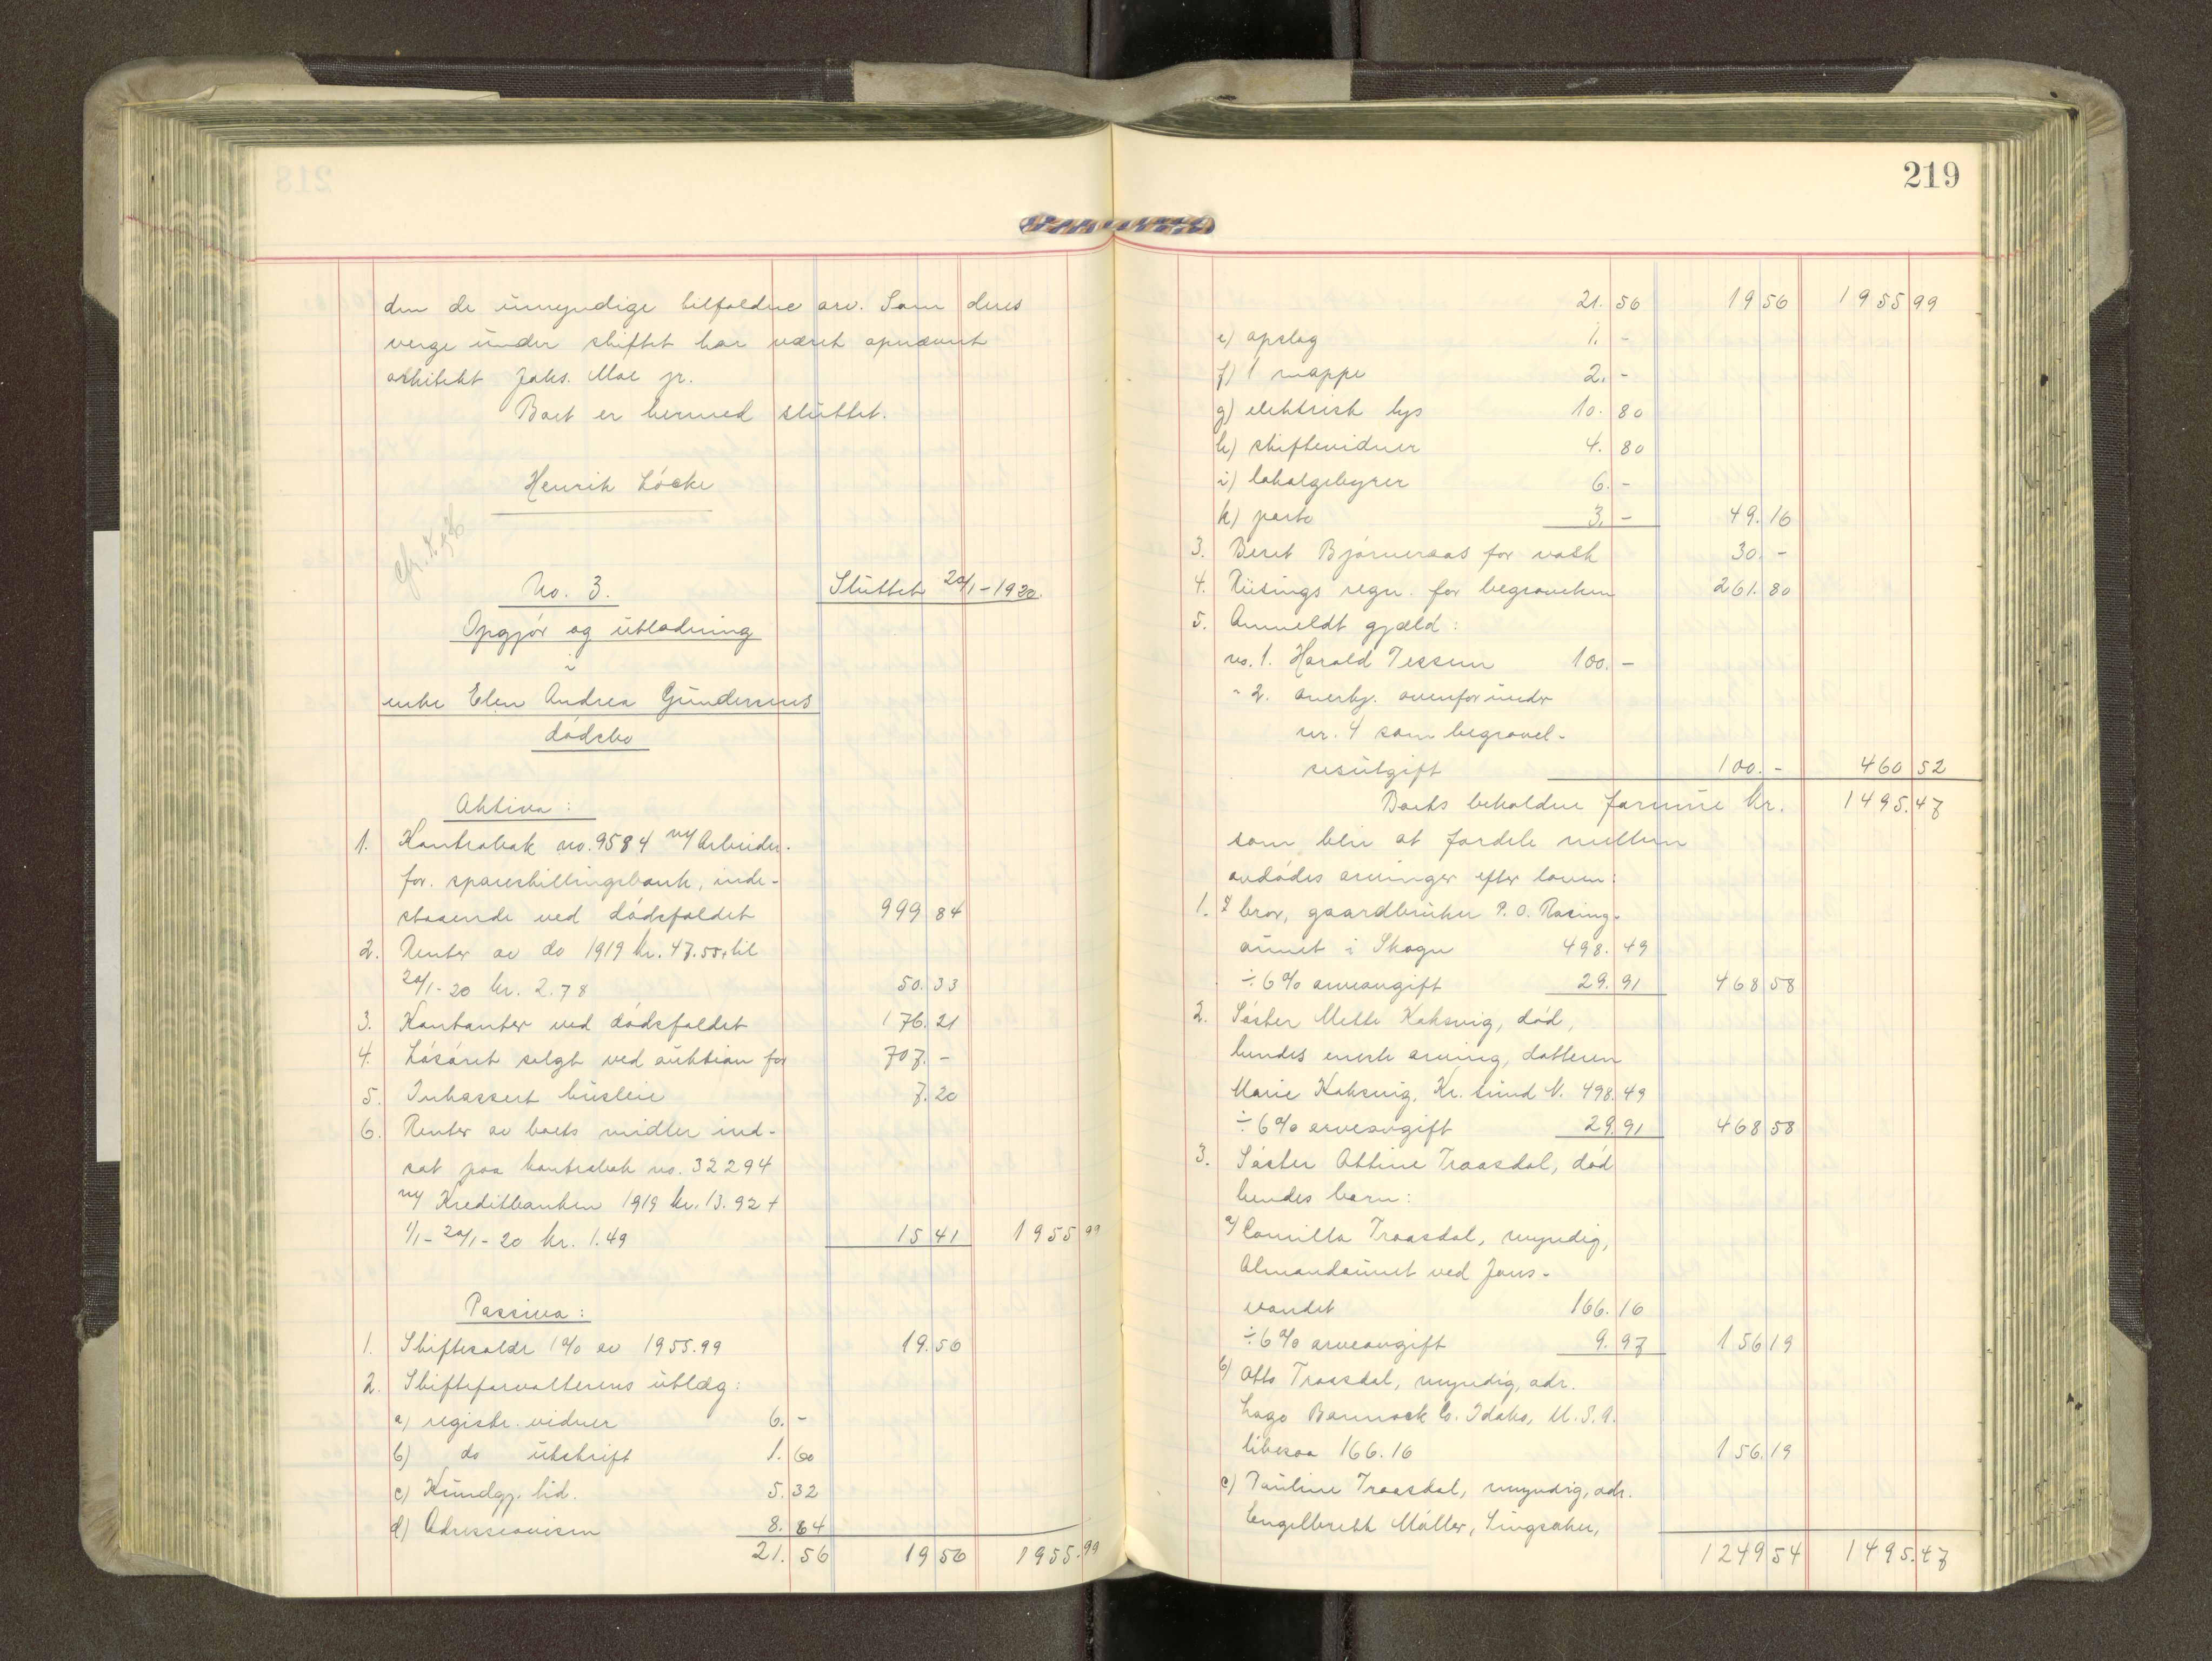 218
den de umyndige tilfaldne arv. Som deres
verge under skiftet har været opnævnt
arkitekt Johs. Moe jr.
Boet er hermed sluttet.
Henrik Löcke
No. 3.
Sluttet 20/1-1920.
Opgjör og utlodning
i
enke Elen Andrea Gundersens
dödsbo
Aktiva:
1. Kontrabok no. 9584 n/ Arbeider-
for. spareskillingsbank, inde-
staaende ved dödsfaldet 999 84
2. Renter av do 1919 kr. 47.55, til
20/1-20 kr. 2.78 50. 33
3. Kontanter ved dödsfaldet 176. 21
4. Lösöret solgt ved auktion for 707. -
5. Inkassert husleie 7. 20
6. Renter av boets midler ind-
sat paa kontrabok no. 32294
n/ Kreditbanken 1919 kr. 13.92 +
1/1-20/1-20 kr. 1.49 15 41 1955 99
Passiva:
1. Skiftesalær 1% av 1955.99 19. 56
2. Skifteforvalterens utlæg:
a) registr. vidner 6. -
b) do utskrift 1. 60
c) Kundgj. tid. 5. 32
d) Adresseavisen 8. 64
21. 56 19 56 1955. 99
219
21. 56 19 56 1955 99
e) opslag 1. -
f) 1 mappe 2. -
g) elektrisk lys 10. 80
h) skiftevidner 4. 80
i) lokalgebyrer 6. -
k) porto 3. - 49. 16
3. Beret Bjørneraas for vask 30. -
4. Riisings regn. for begravelsen 261. 80
5. Anmeldt gjæld:
no. 1. Harald Tessem 100. -
" 2. anerkj. ovenfor under
nr. 4 som begravel-
sesutgift 100. - 460 52
Boets beholdne formue kr. 1495. 47
som blir at fordele mellem
avdödes arvinger efter loven:
1. bror, gaardbruker P. O. Rosing-
aunet i Skogn 498. 49
÷ 6% arveavgift 29. 91 468 58
2. Söster Mette Koksvig, död,
hendes eneste arving, datteren
Marie Koksvig, Kr. sund N. 498. 49
÷ 6% arveavgift 29. 91 468 58
3. Söster Ottine Traasdal, död
hendes barn:
a) Camilla Traasdal, myndig,
Almandaunet ved Jons-
vandet 166. 16
÷ 6% arveavgift 9. 97 156 19
b) Otto Traasdal, myndig, adr.
Lago Bannock Co. Idaho, U. S. A.
likesaa 166.16 156. 19
c) Pauline Traasdal, myndig, adr.
Engelbrekt Möller, Singsaker,
1249 54 1495. 47